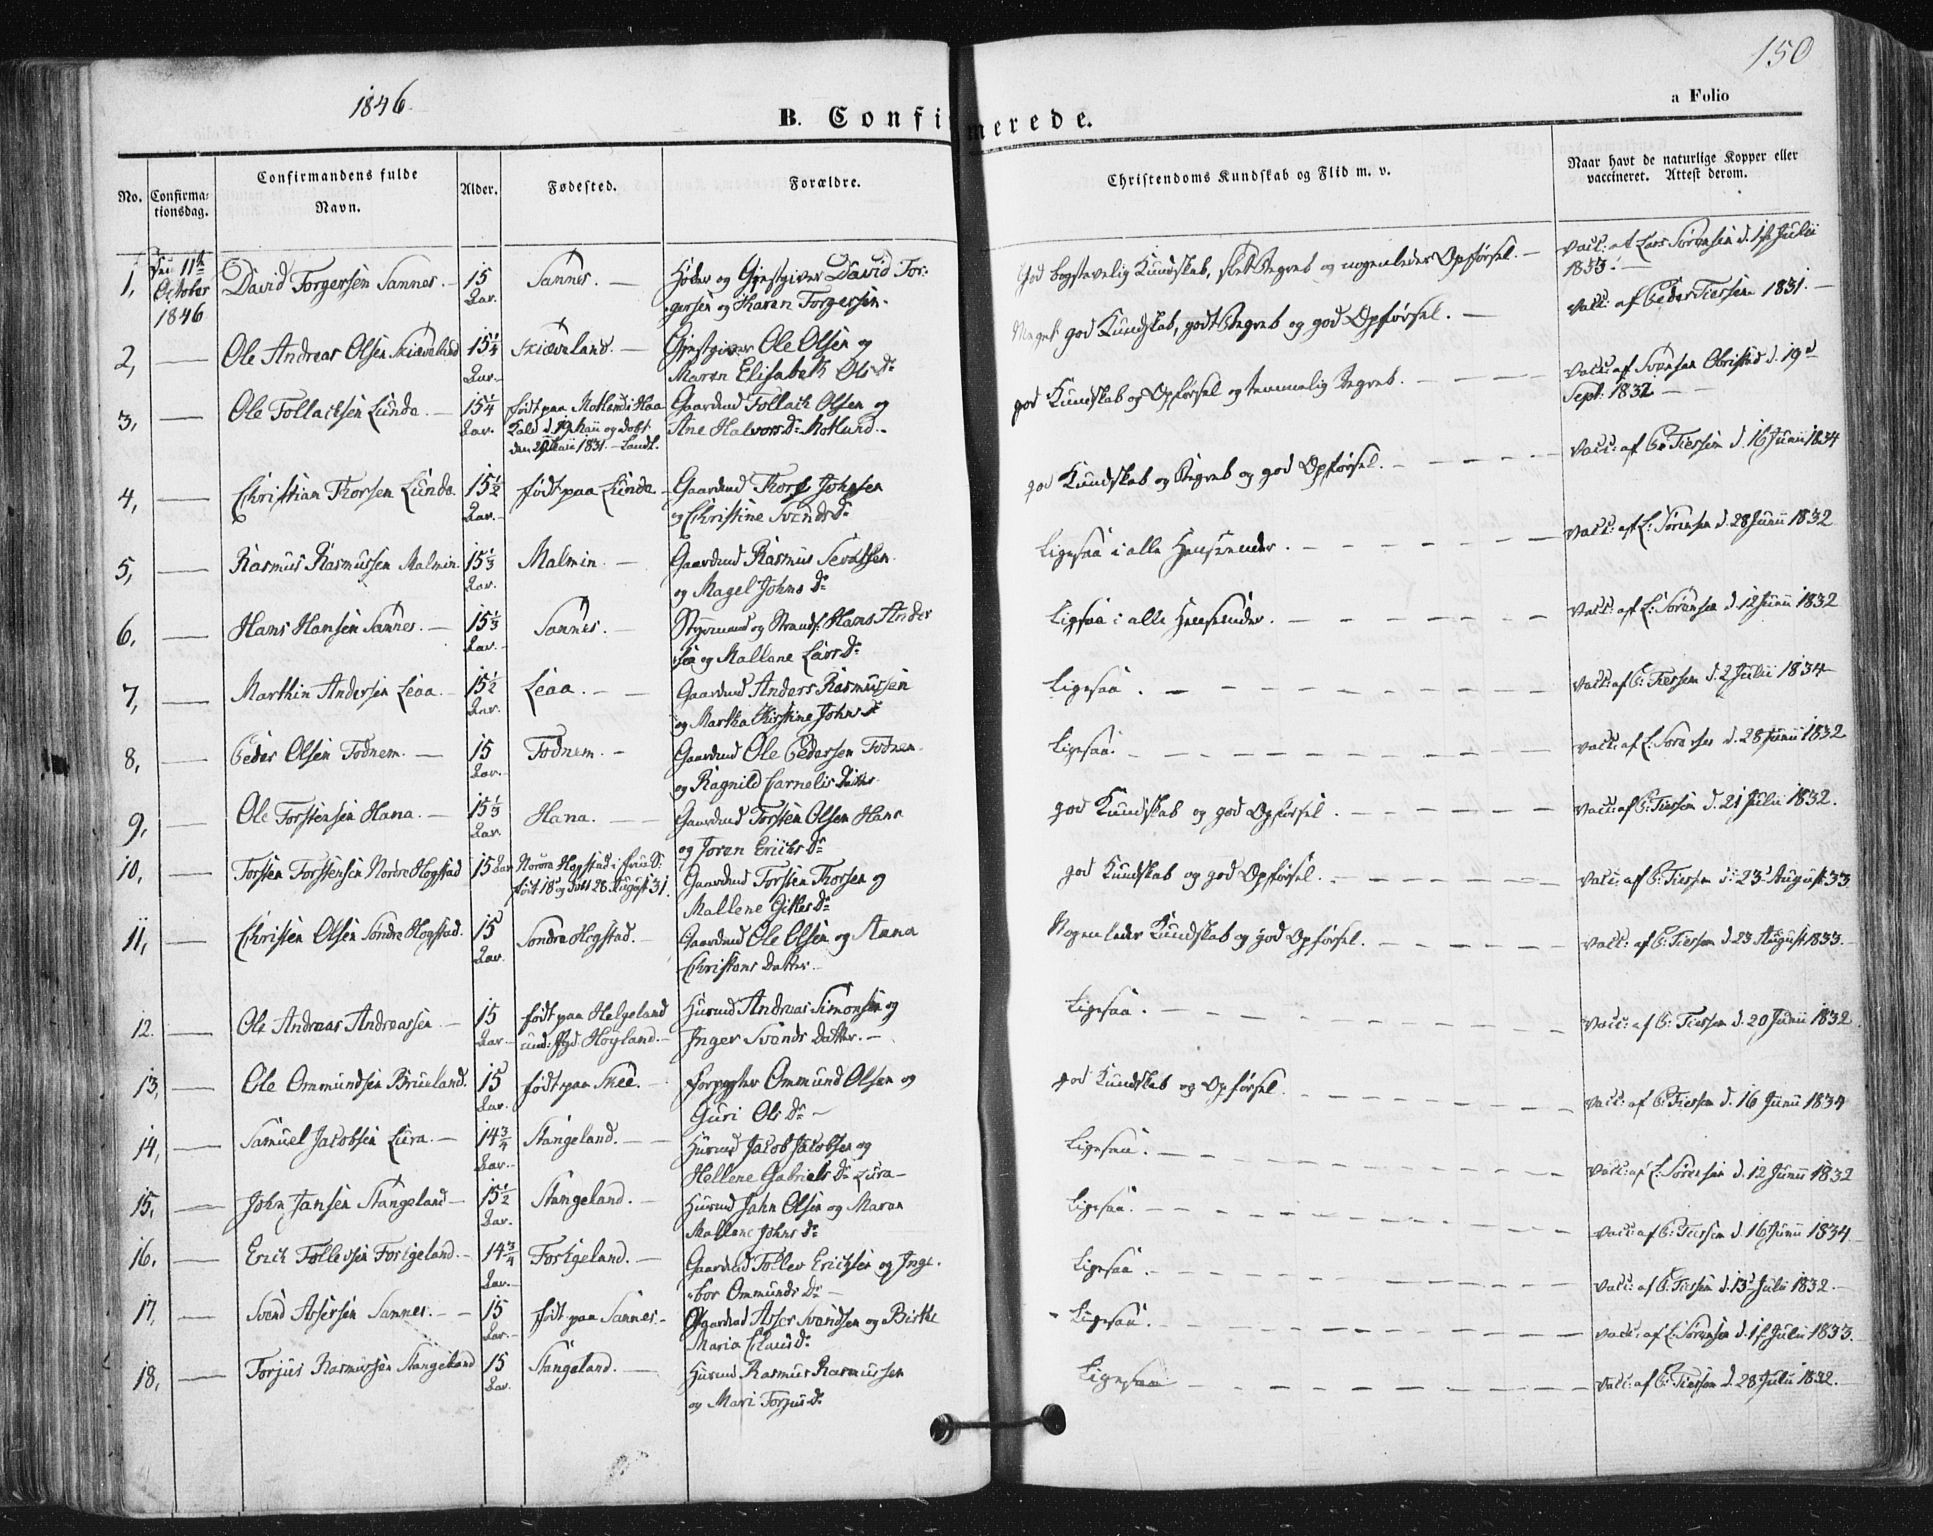 1846.
150
B. Confirmerede.
a Folio
No.
Confirma-
tionsdag.
Confirmandens fulde
Navn.
Alder.
Fødested.
Forældre.
Christendoms Kundskab og Flid m. v.
Naar havt de naturlige Kopper eller
vaccineret. Attest derom.
1, Den 11te October 1846 David Torgersen Sannes. 15 Aar. Sannes. Høker og Gjestgiver David Tor-
gersen og Karen Torgersen.
God bogstavelig Kundskab, slet Begreb og nogenledes Opførsel.
Vacc: af Lars Sørensen d. 1ste Julii
1833.
2, Ole Andreas Olsen Skiæveland 15¼ Aar. Skiæveland. Gjestgiver Ole Olsen og
Maren Elisabeth Ols Dr
Meget god Kundskab, godt Begreb og god Opførsel.
Vacc: af Peder Tiessen 1831.
3, Ole Tollachsen Lunde. 15¼ Aar. født paa Motland i Haa
den 29 Maii 1831.
Gaardmd Tollach Olsen og
Ane Halvors Dr Motland.
god Kundskab og Opførsel og temmelig Begreb.
Vacc: af Svensen d. 19d
Sept: 1832
4, Christian Thorsen Lunde. 15½ Aar. født paa Lunde. Gaardmd Thore Johnsen
og Christine Svends Dr
god Kundskab og Begreb og god Opførsel.
Vacc: af P: Tiessen d. 16 Junii 1834
5, Rasmus Rasmussen Malmin. 15⅓ Aar. Malmin. Gaardmd Rasmus Sevatsen
og Magel Johns Dr
Ligesaa i alle Henseender.
Vacc: af L: Sørensen d. 28 Junii 1832
6, Hans Hansen Sannes. 15⅓ Aar. Sannes. Styrmand og Strands. Hans Ander
sen og Mallene Lars Dr
Ligesaa i alle Henseender.
Vacc: af L: Sørensen d. 12 Junii 1832
7, Marthin Andersen Leaa. 15½ Aar. Leaa. Gaardmd Anders Rasmussen
og Martha Kirstine Johns Dr
Ligesaa.
Vacc: af P: Tiessen d. 2 Julii 1834
8, Peder Olsen Todnem. 15 Aar. Todnem. Gaardmd Ole Pedersen Todnem
og Ragnild Carnelis Datter
Ligesaa.
Vacc: af L: Sørensen d. 28 Junii 1832
9, Ole Torstensen Hana. 15⅓ Aar. Hana. Gaardmd Torsten Olsen Hana
og Joren Erichs Dr
god Kundskab og god Opførsel.
Vacc: af P: Tiessen d. 21 Julii 1832.
10, Torsten Torstensen Nordre Hogstad 15 Aar Nordre Hogstad
født 18 og døbt 28 August 31.
Gaardmd Torsten Thorsen og
Mallene Gitles Dr
god Kundskab og god Opførsel.
Vacc: af P: Tiessen d: 23 August 33
11, Christen Olsen Søndre Hogstad. 15 Aar. Søndre Hogstad. Gaardmd Ole Olsen og Anna
Christens Datter.
Nogenledes Kundskab og god Opførsel.
Vacc: af P: Tiessen d. 23 August 1833.
12. Ole Andreas Andreassen 15 Aar. født paa Helgeland
Høyland.
Husmd Andreas Simonsen og
Inger Svends Datter.
Ligesaa.
Vacc: af P: Tiessen d. 20 Junii 1832
13, Ole Ommundsen Bruuland. 15 Aar. født paa Skee. Forpagter Ommund Olsen og
Guri Ols Dr
god Kundskab og Opførsel.
Vacc: af P: Tiessen d. 16 Junii 1834
14, Samuel Jacobsen Lura. 14¾ Aar. Stangeland. Husmd Jacob Jacobsen og
Hellene Gabriels Dr Lura
Ligesaa.
Vacc: af L: Sørensen d. 12 Junii 1832
15, John Jansen Stangeland 15½ Aar. Stangeland. Husmd Jahn Olsen og Maren
Mallene Johns Dr
Ligesaa.
Vacc: af P: Tiessen d. 16 Junii 1834.
16, Erich Tollevsen Foskgeland. 14¾ Aar. Foskgeland. Gaardmd Tollev Erichsen og Inge-
bor Ommunds Dr
Ligesaa.
Vacc: af P: Tiessen d. 13 Julii 1832.
17, Svend Assersen Sannes. 15 Aar. født paa Sannes. Opgaardmd Asser Svendsen og Birthe
Maria Claus Dr
Ligesaa.
Vacc: af L: Sørensen d. 1ste Julii 1833.
18, Torjus Rasmussen Stangeland 15 Aar. Stangeland. Husmd Rasmus Rasmussen
og Mari Torjus Dr
Ligesaa
Vacc: af P: Tiessen d. 28 Julii 1832.